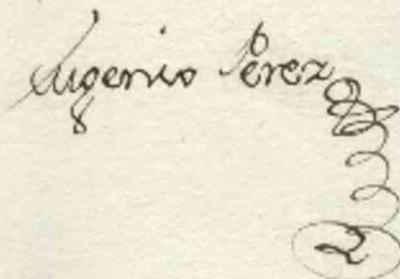 Eugenio Perez